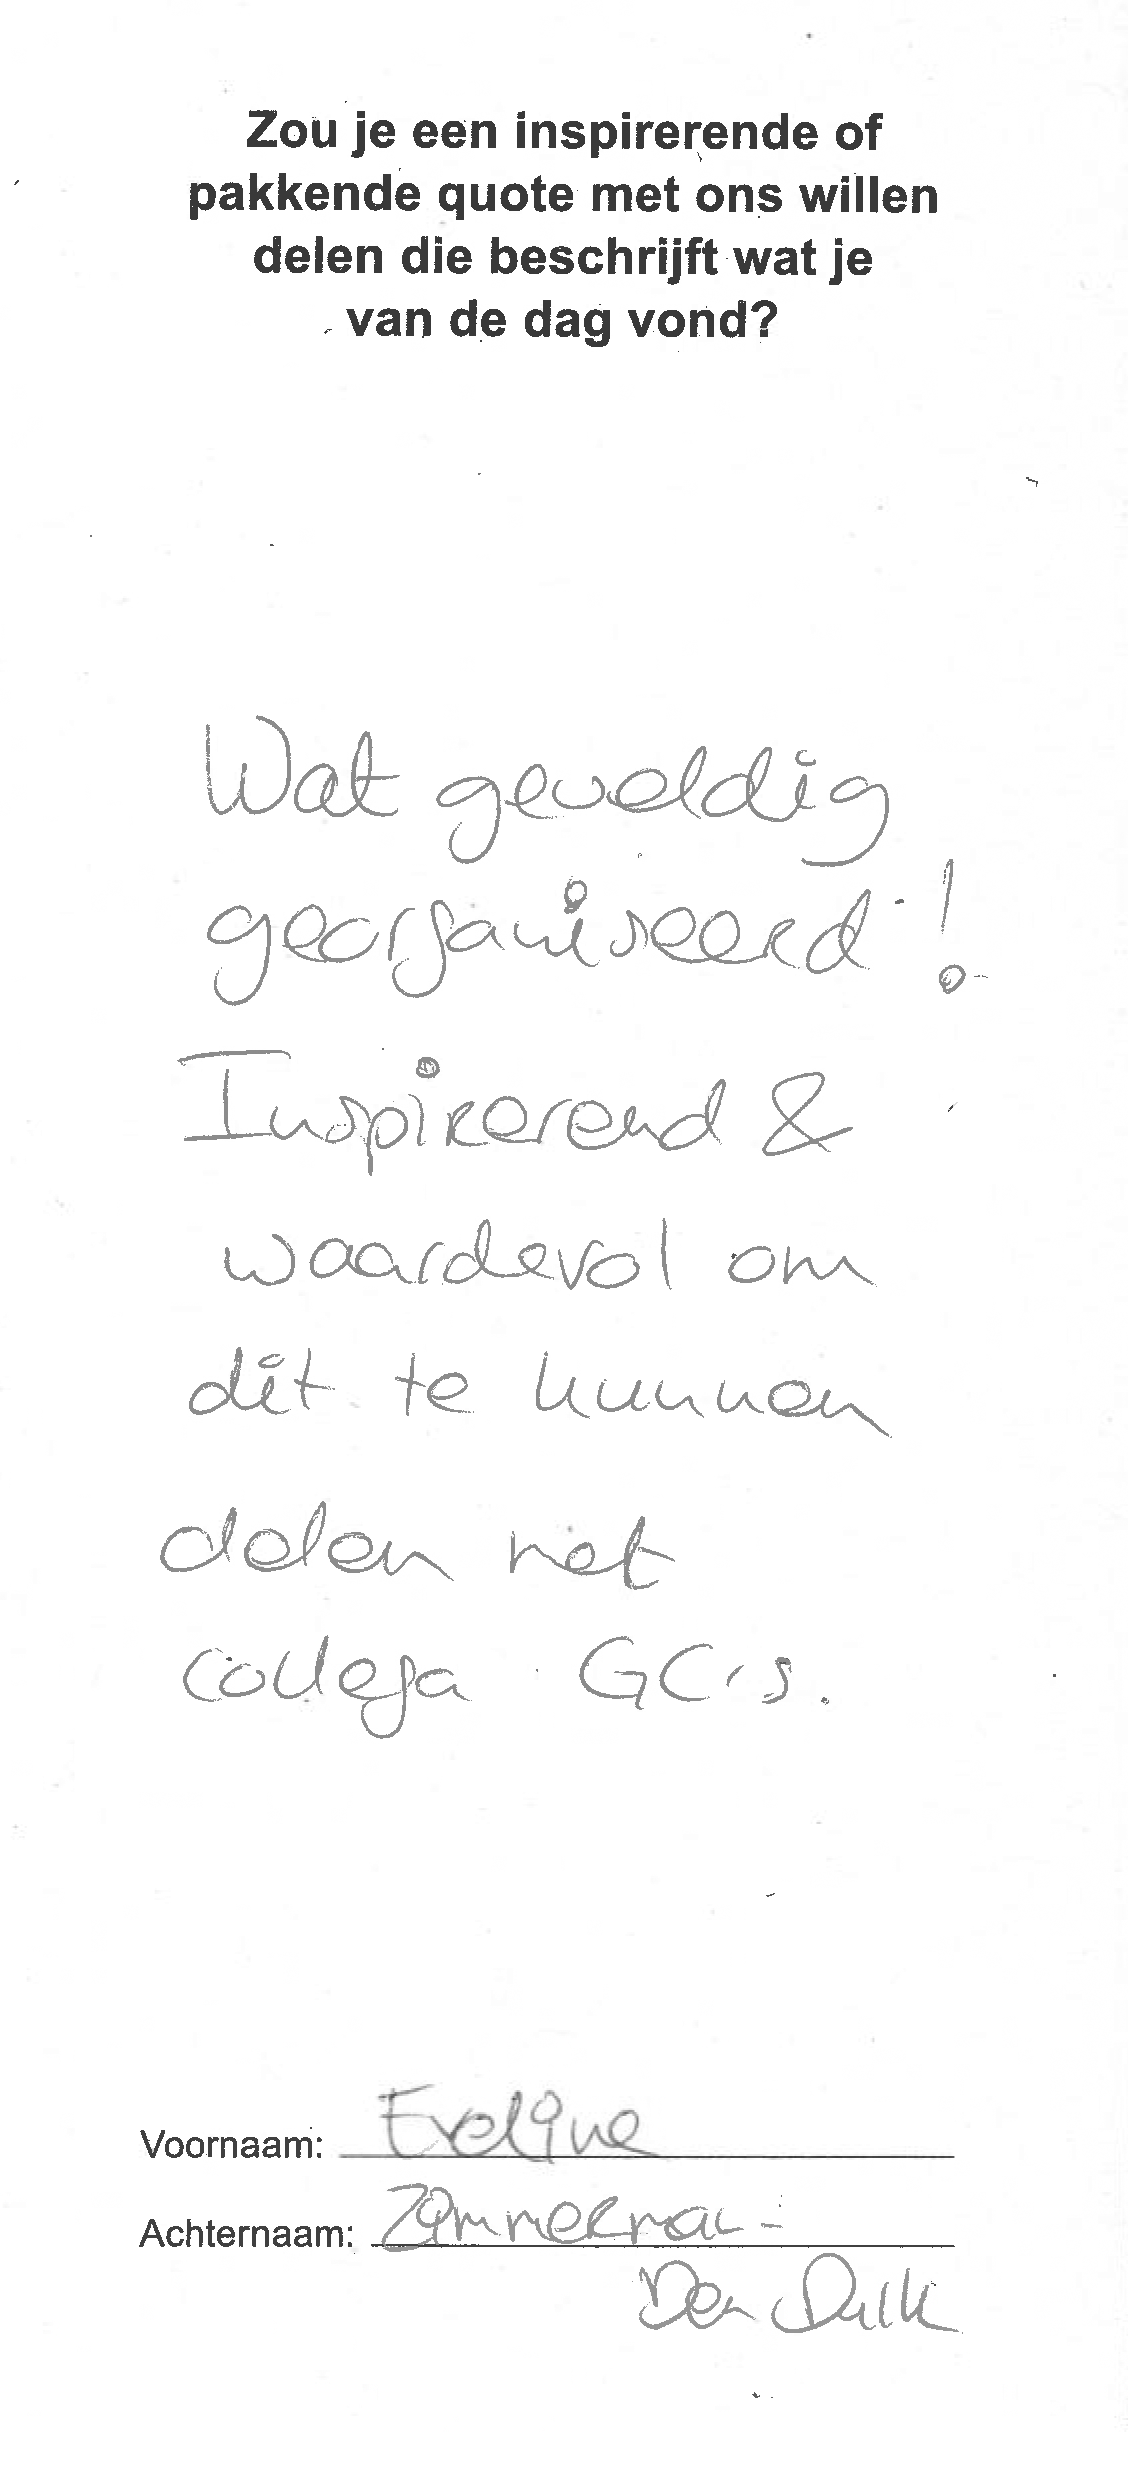 Zou je een inspirerende of
pakkende quote met ons willen
delen die beschrijft wat je
van de dag vond?
Wat geweldig
georganiseerd!
Inspirerend &
waardevol om
dit te kunnen
delen met
collega GC's.
Voornaam: Eveline
Achternaam: Zimmerman -
Den Dulk